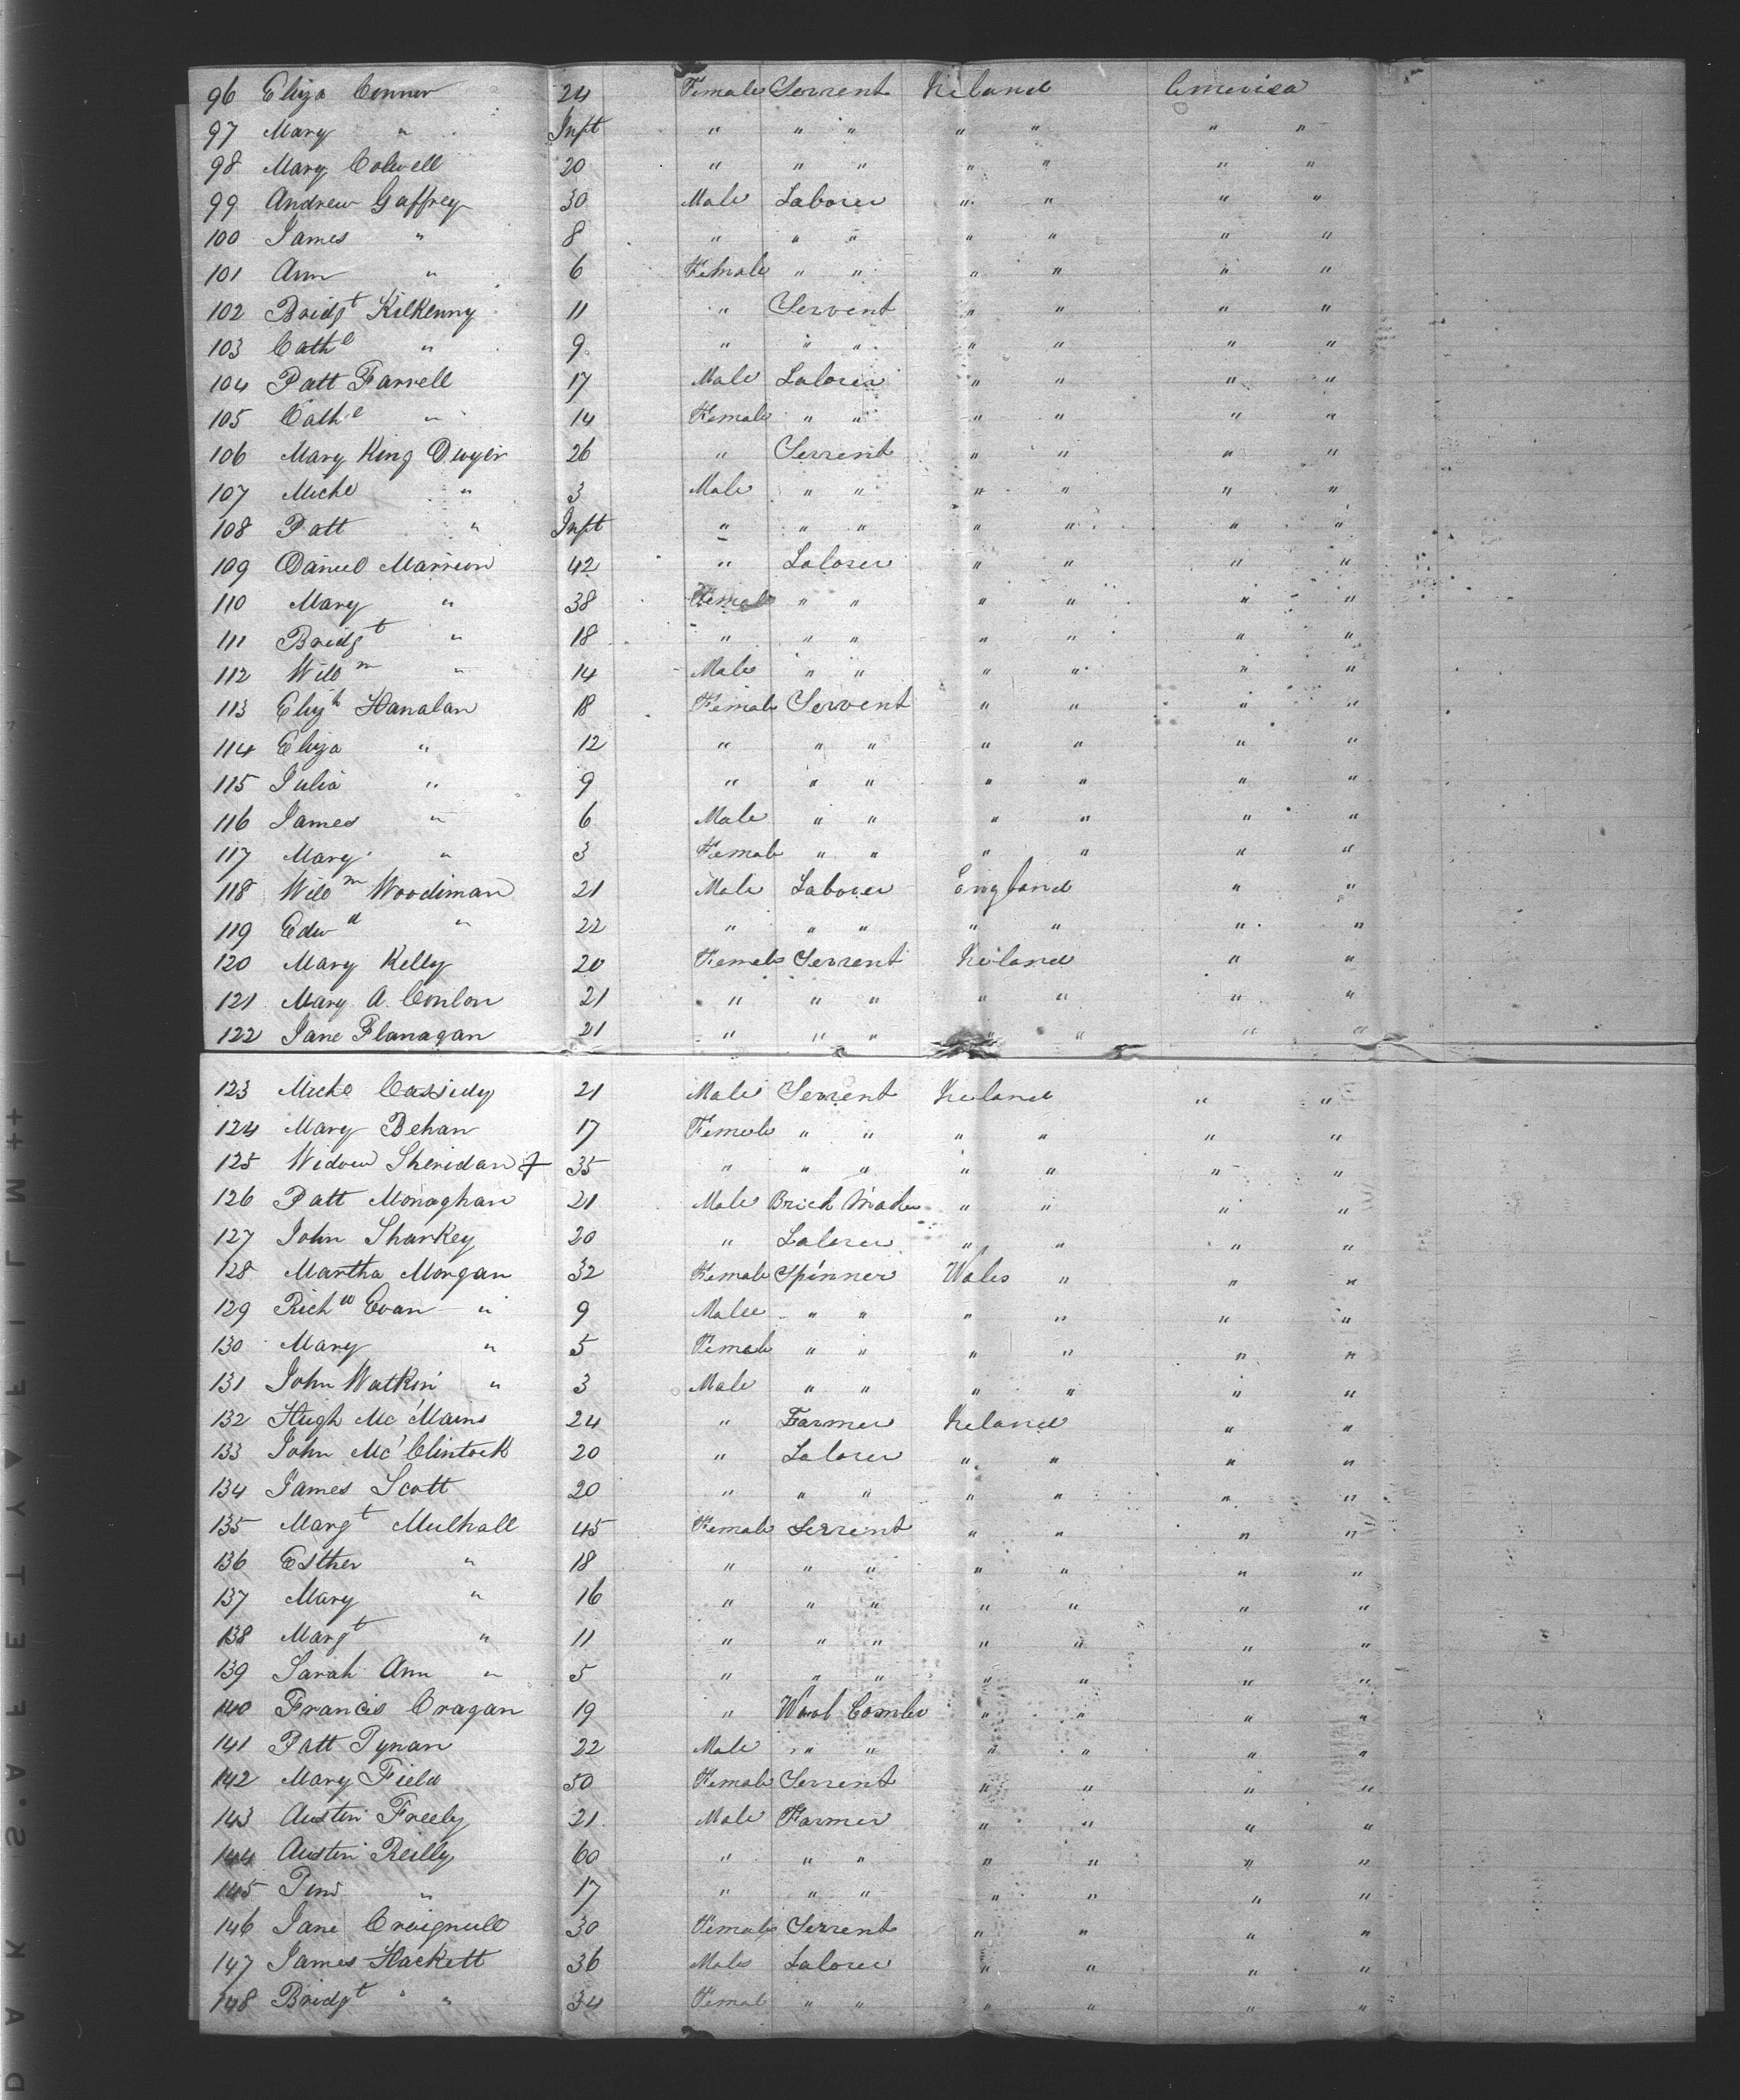 96 Eliza Connor 24 Female Servent Ireland America
97 Mary " Inft " " " " " " "
98 Mary Colwell 20 " " " " " " "
99 Andrew Gaffrey 30 Male Laborer " " " "
100 James " 8 " " " " " " "
101 Ann " 6 Female " " " " " "
102 Bridgt Kilkenny 11 " Servent " " " "
103 Cathe " 9 " " " " " " "
104 Patt Farrell 17 Male Laborer " " " "
105 Cathe " 14 Female " " " " " "
106 Mary King Dwyer 26 " Servent " " " "
107 Michl " 3 Male " " " " " "
108 Patt " Inft " " " " " " "
109 Daniel Marrion 42 " Laborer " " " "
110 Mary " 38 Female " " " " " "
111 Bridgt " 18 " " " " " " "
112 Willm " 14 Male " " " " " "
113 Elizh Hanalan 18 Female Servent " " " "
114 Eliza " 12 " " " " " " "
115 Julia " 9 " " " " " " "
116 James " 6 Male " " " " " "
117 Mary " 3 Female " " " " " "
118 Willm Woodiman 21 Male Laborer England " "
119 Edwd " 22 " " " " " " "
120 Mary Kelly 20 Female Servent Ireland " "
121 Mary A. Conlon 21 " " " " " " "
122 Jane Flanagan 21 " " " " " " "
123 Michl Cassidy 21 Male Servent Ireland " "
124 Mary Behan 17 Female " " " " " "
125 Widow Sheridan 35 " " " " " " "
126 Patt Monaghan 21 Male Brick Maker " " " "
127 John Sharkey 20 " Laborer " " " "
128 Martha Morgan 32 Female Spinner Wales " " "
129 Richd Evan " 9 Male " " " " " "
130 Mary " 5 Female " " " " " "
131 John Watkin " 3 Male " " " " " "
132 Hugh Mc Mains 24 " Farmer Ireland " "
133 John Mc Clintock 20 " Laborer " " " "
134 James Scott 20 " " " " " " "
135 Margt Mulhall 45 Female Servent " " " "
136 Esther " 18 " " " " " " "
137 Mary " 16 " " " " " " "
138 Margt " 11 " " " " " " "
139 Sarah Ann " 5 " " " " " " "
140 Francis Cragan 19 " Wool Comber " " " "
141 Patt Tynan 22 Male " " " " " "
142 Mary Field 50 Female Servent " " " "
143 Austin Freely 21 Male Farmer " " " "
144 Austin Reilly 60 " " " " " " "
145 " 17 " " " " " " "
146 Jane 30 Female Servent " " " "
147 James Hackett 36 Male Laborer " " " "
148 Bridgt " " 34 Female " " " " " "